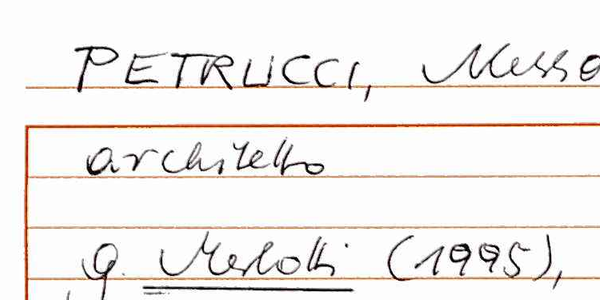 PETRUCCI, Messe
architetto
G. Merlotti (1995),